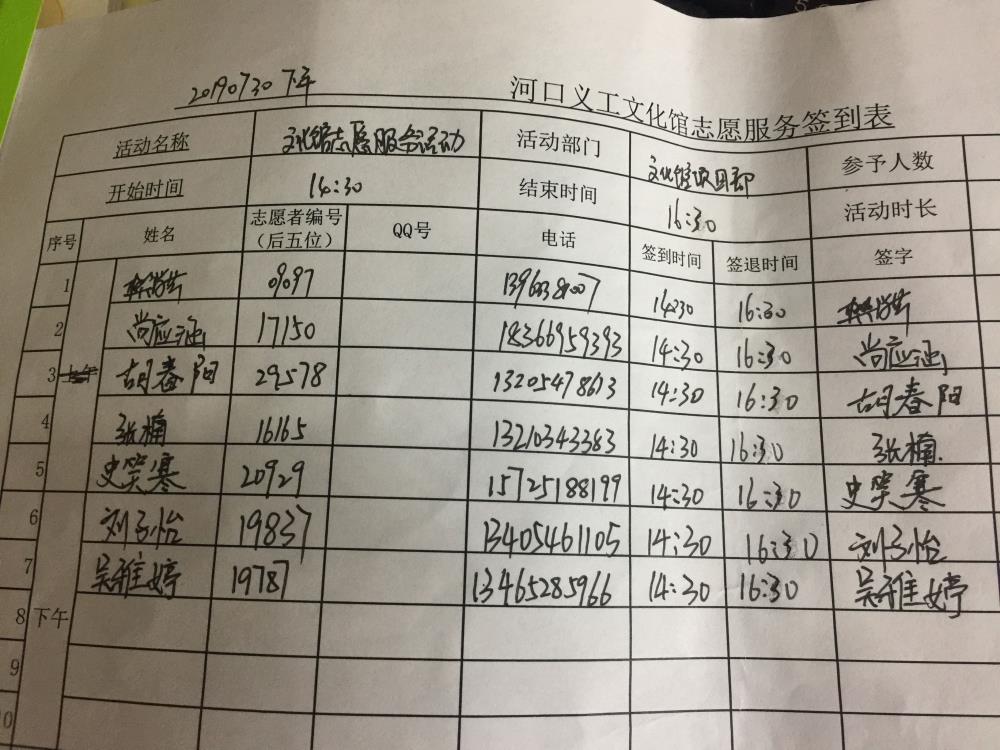 20190730 下午
河口义工文化馆志愿服务签到表
活动名称 文化馆志愿服务活动 活动部门 文化馆项目部 参予人数
开始时间 14:30 结束时间 16:30 活动时长
序号 姓名 志愿者编号（后五位） QQ号 电话 签到时间 签退时间 签字
1 09097 14:30 16:30
2 尚应涵 17150 18366959393 14:30 16:30 尚应涵
3 胡春阳 29578 13205478613 14:30 16:30 胡春阳
4 张楠 16165 13210343383 14:30 16:30 张楠
5 史笑寒 20929 15725188199 14:30 16:30 史笑寒
6 刘子怡 19837 13405461105 14:30 16:30 刘子怡
7 吴雅婷 19787 13465285966 14:30 16:30 吴雅婷
8 下午
9
10